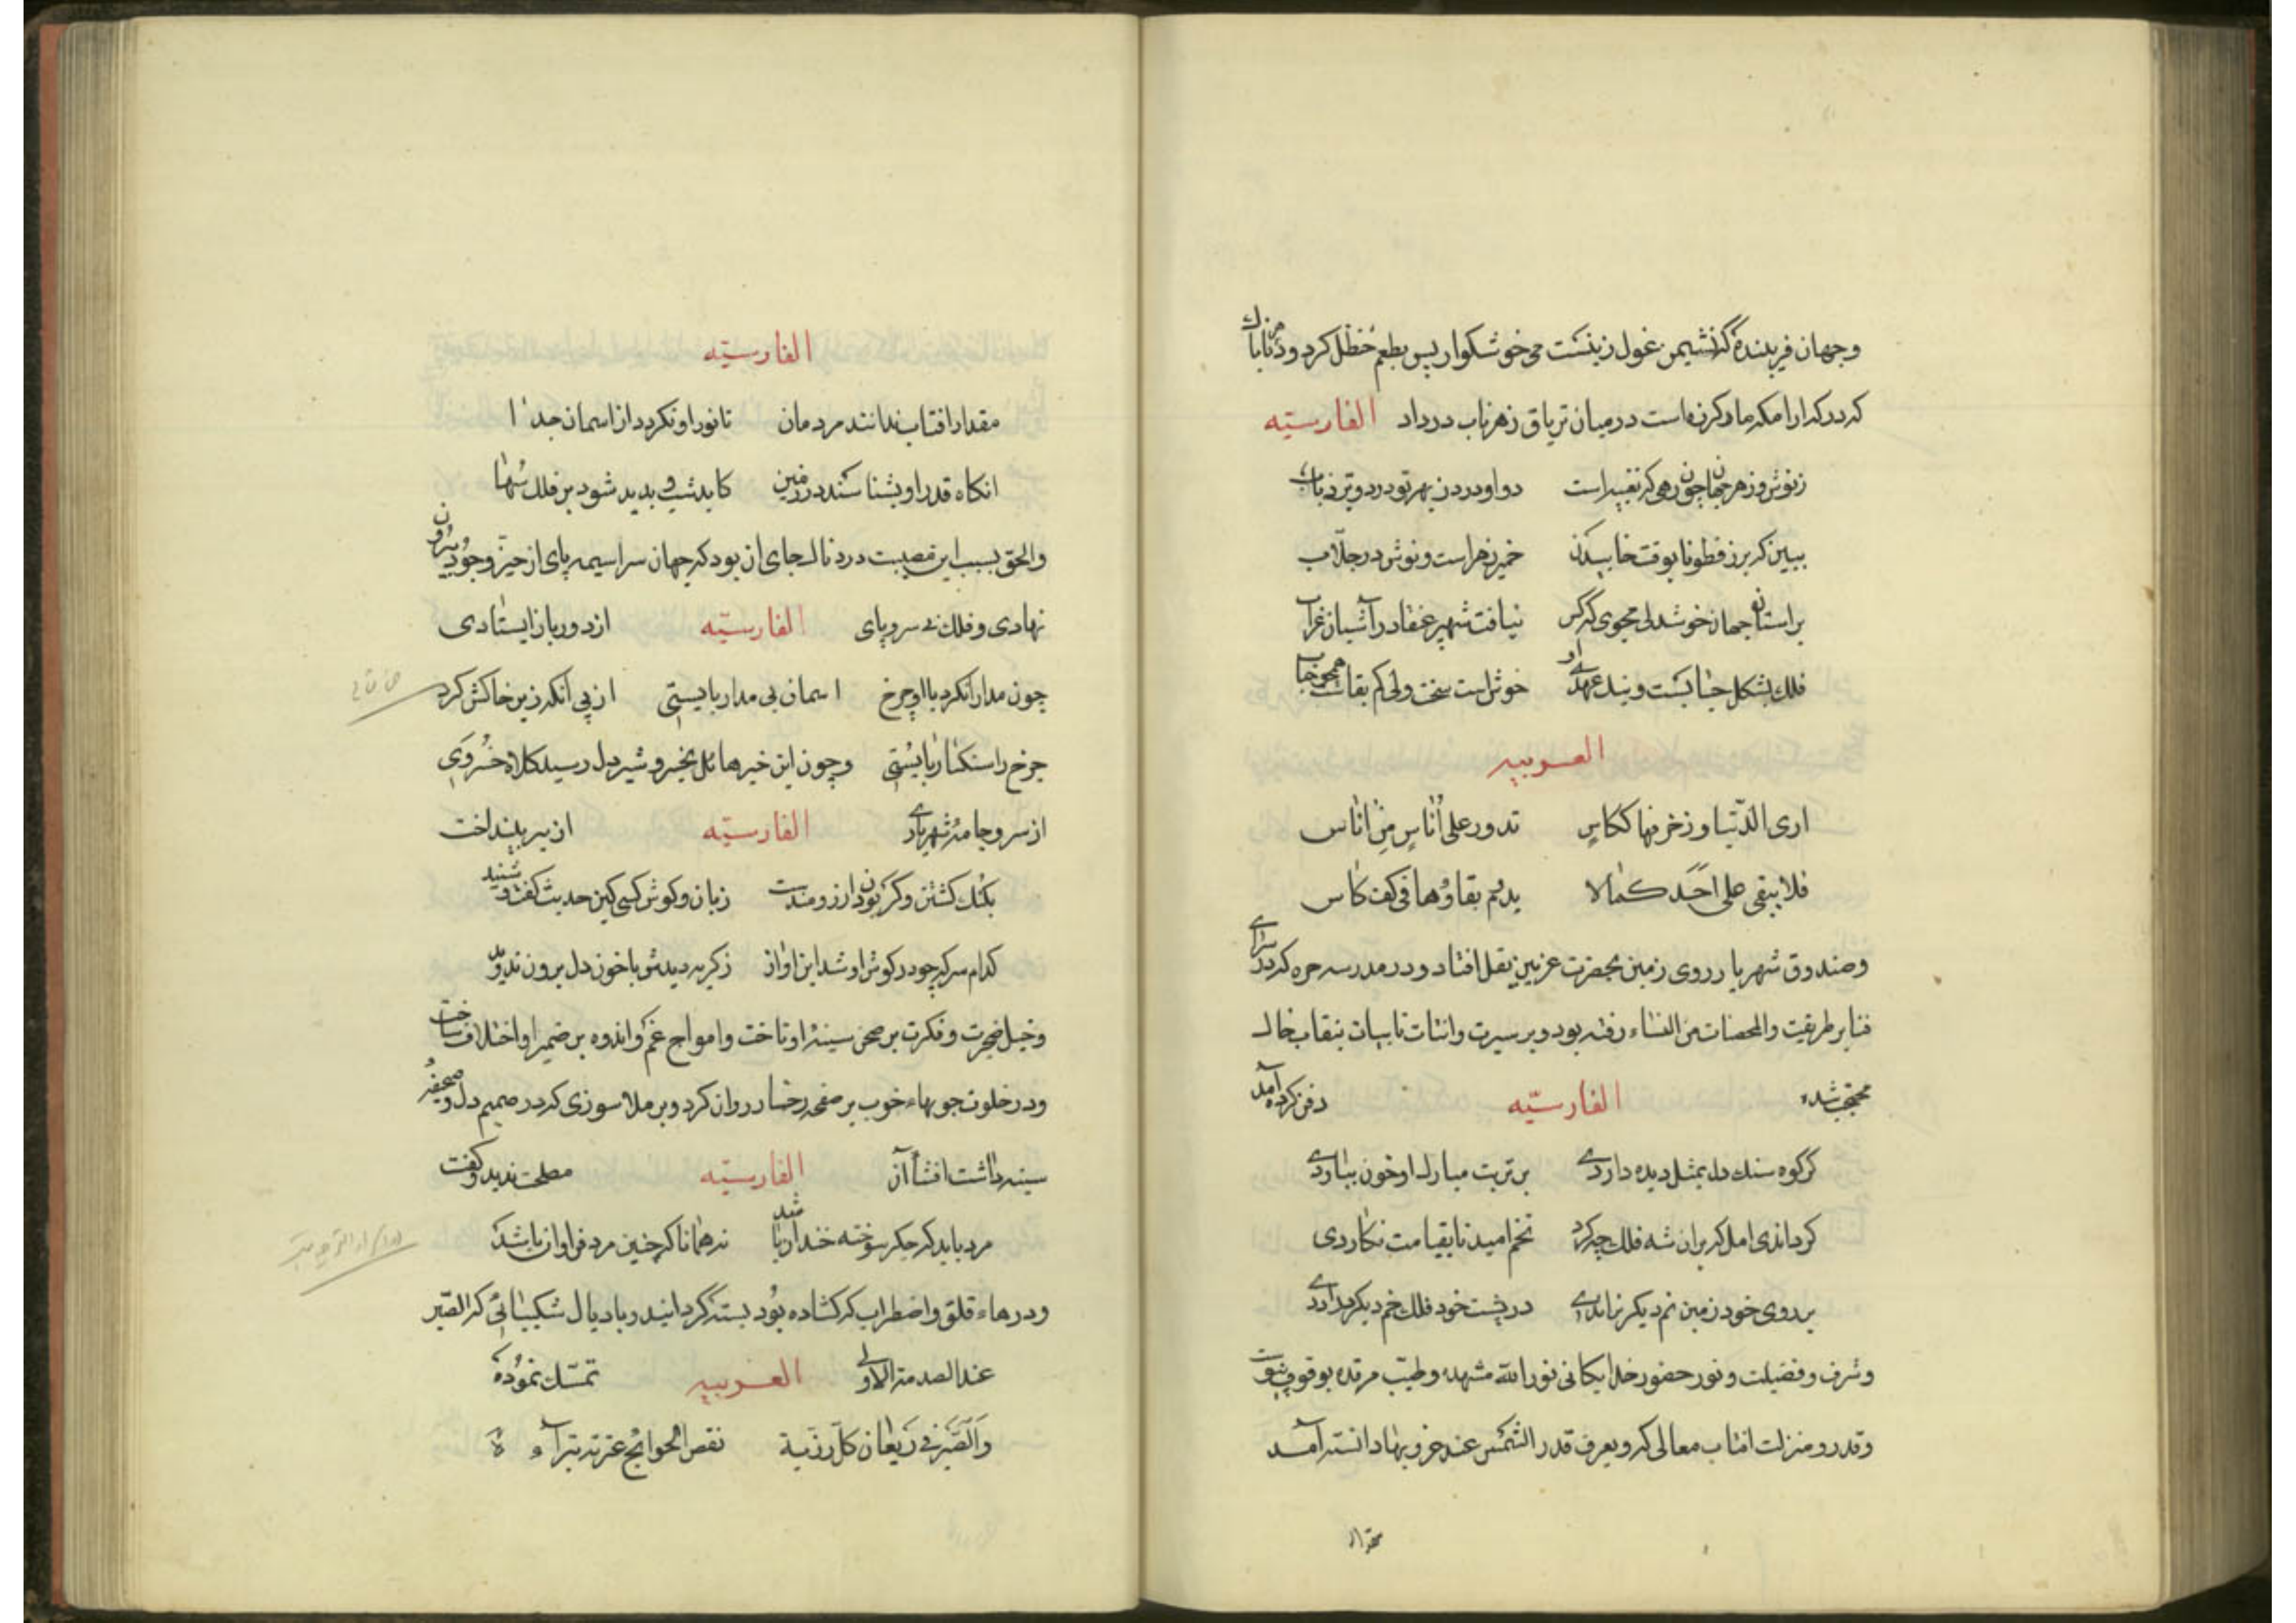 وجهان فریبنده که نشیمن غول زینست می خوشکوار پس بطعم حنظل کرد و
که در کدارامکه مار کرزه است در میان تریاق زهر ناب در داد الفارسیّه
ز نوش و زهر جهان چون رهی که تقبیراست دوا و درد ز بهر تو درد وتر دریاب
ببین که برز قطونا بوقت خاییدن خمیر زهر است و نوش در جلّاب
بر استان جهان خوشدلی مجوی که کس نیافت شهپر عنقا در آشیان غراب
فلک بشکل حبابست و نیک عهدی او خوش است سخت ولی کم بقاست همچو حباب
العربیه
اری الدّنیا و زخرفها ککاسٍ تدور علی اُناسٍ مِن اناس
فلا یبقی علی احَدٍ کمالا یدم بقاؤها فی کف کاس
وصندوق شهریار روی زمین بحضرت غزنین نقل افتاد و در مدرسه حره که در سرای
فنا بر طریقت والمحصنات من النساء رفته بود و بر سیرت وانتات تایبات بنقاب خاک
محتجب شده الفارسیّه دفن کرده آمد
گر کوه سنک دل بمثل دیده داردی بر تربت مبارک او خون بباردی
کر داندی امل که بران شه فلک چه کرد تخم امید تا بقیامت نکاردی
بر روی خود زمین نم دیکر نماندی در پشت خود فلک خم دیکر دراردی
وشرف وفضیلت و نور حضور خدایکانی نور الله مشهده وطیّب مرقده بوقوف پیوست
وقدر ومنزلت افتاب معالی که ویعرف قدر الشمس عند غروبها دانسته آمد
الفارسیّه
مقدار افتاب ندانند مردمان تا نور او نکردد از اسمان جدا
انکاه قدر او بشناسند در زمین کاید شب و بدید شود بر فلک سُها
والحق بسبب این مصیبت دردناک جای ان بود که جهان سراسیمه پای از حیّز وجود بیرون
نهادی و فلک بی سر و پای الفارسیّه از دور باز ایستادی
چون مدارا نکرد با او چرخ اسمان بی مدار بایستی از پی انکه زیر خاکش کرد
چرخ را سنکسار بایستی وچون این خبر هائل بخسرو شیر دل رسید کلاه خسروی
از سر و جامه شهریاری الفارسیّه از بر بینداخت
بکنک کشتن و کر بودن ارزومندست زبان و کوش کسی کین حدیث کفت و شنید
کدام سر که چو در کوش او شد این اواز ز کریه دیده او با خون دل برون ندوید
وخیل ضجرت و فکرت بر صحن سینه او تاخت وامواج غم واندوه بر ضمیر او اختلاف ساخت
ودر خلوت جویهاء خوب بر صفحه رخسار روان کرد و بر ملا سوزی که در صمیم دل و صحیفه
سینه داشت افشاء آن الفارسیّه مصلحت ندید و کفت
مرد باید که جکر سوخته خندان باشد نه همانا که چنین مرد فراوان باشد
ودرهاء قلق واضطراب که کشاده بود بسته گردانید و باذیال شکیبائی که الصّبر
عند الصدمة الاولی العربیه تمسّک نموده
وَالصَّبر فی رَیعان کلّ رزّیة